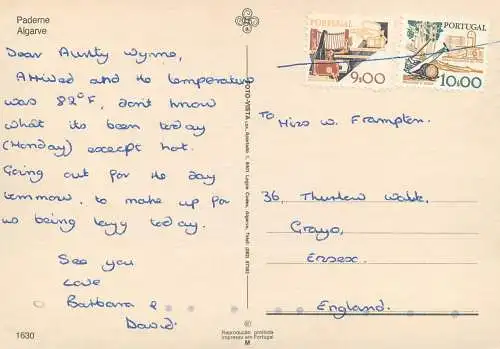 Paderne
Algarve
Dear Aunty Wynne,
Arrived and the temperature
was 82°F, don't know
what its been today
(Monday) except hot.
Going out for the day
tommorow, to make up for
us being lazy today.
See you
Love
Barbara &
David.
1630
FOTO-VISTA
PORTUGAL
9$00
PORTUGAL
10$00
To Miss W. Frampton.
36, Thurslow Walk,
Grays,
Essex,
England.
Reprodução proibida
Impresso em Portugal
M